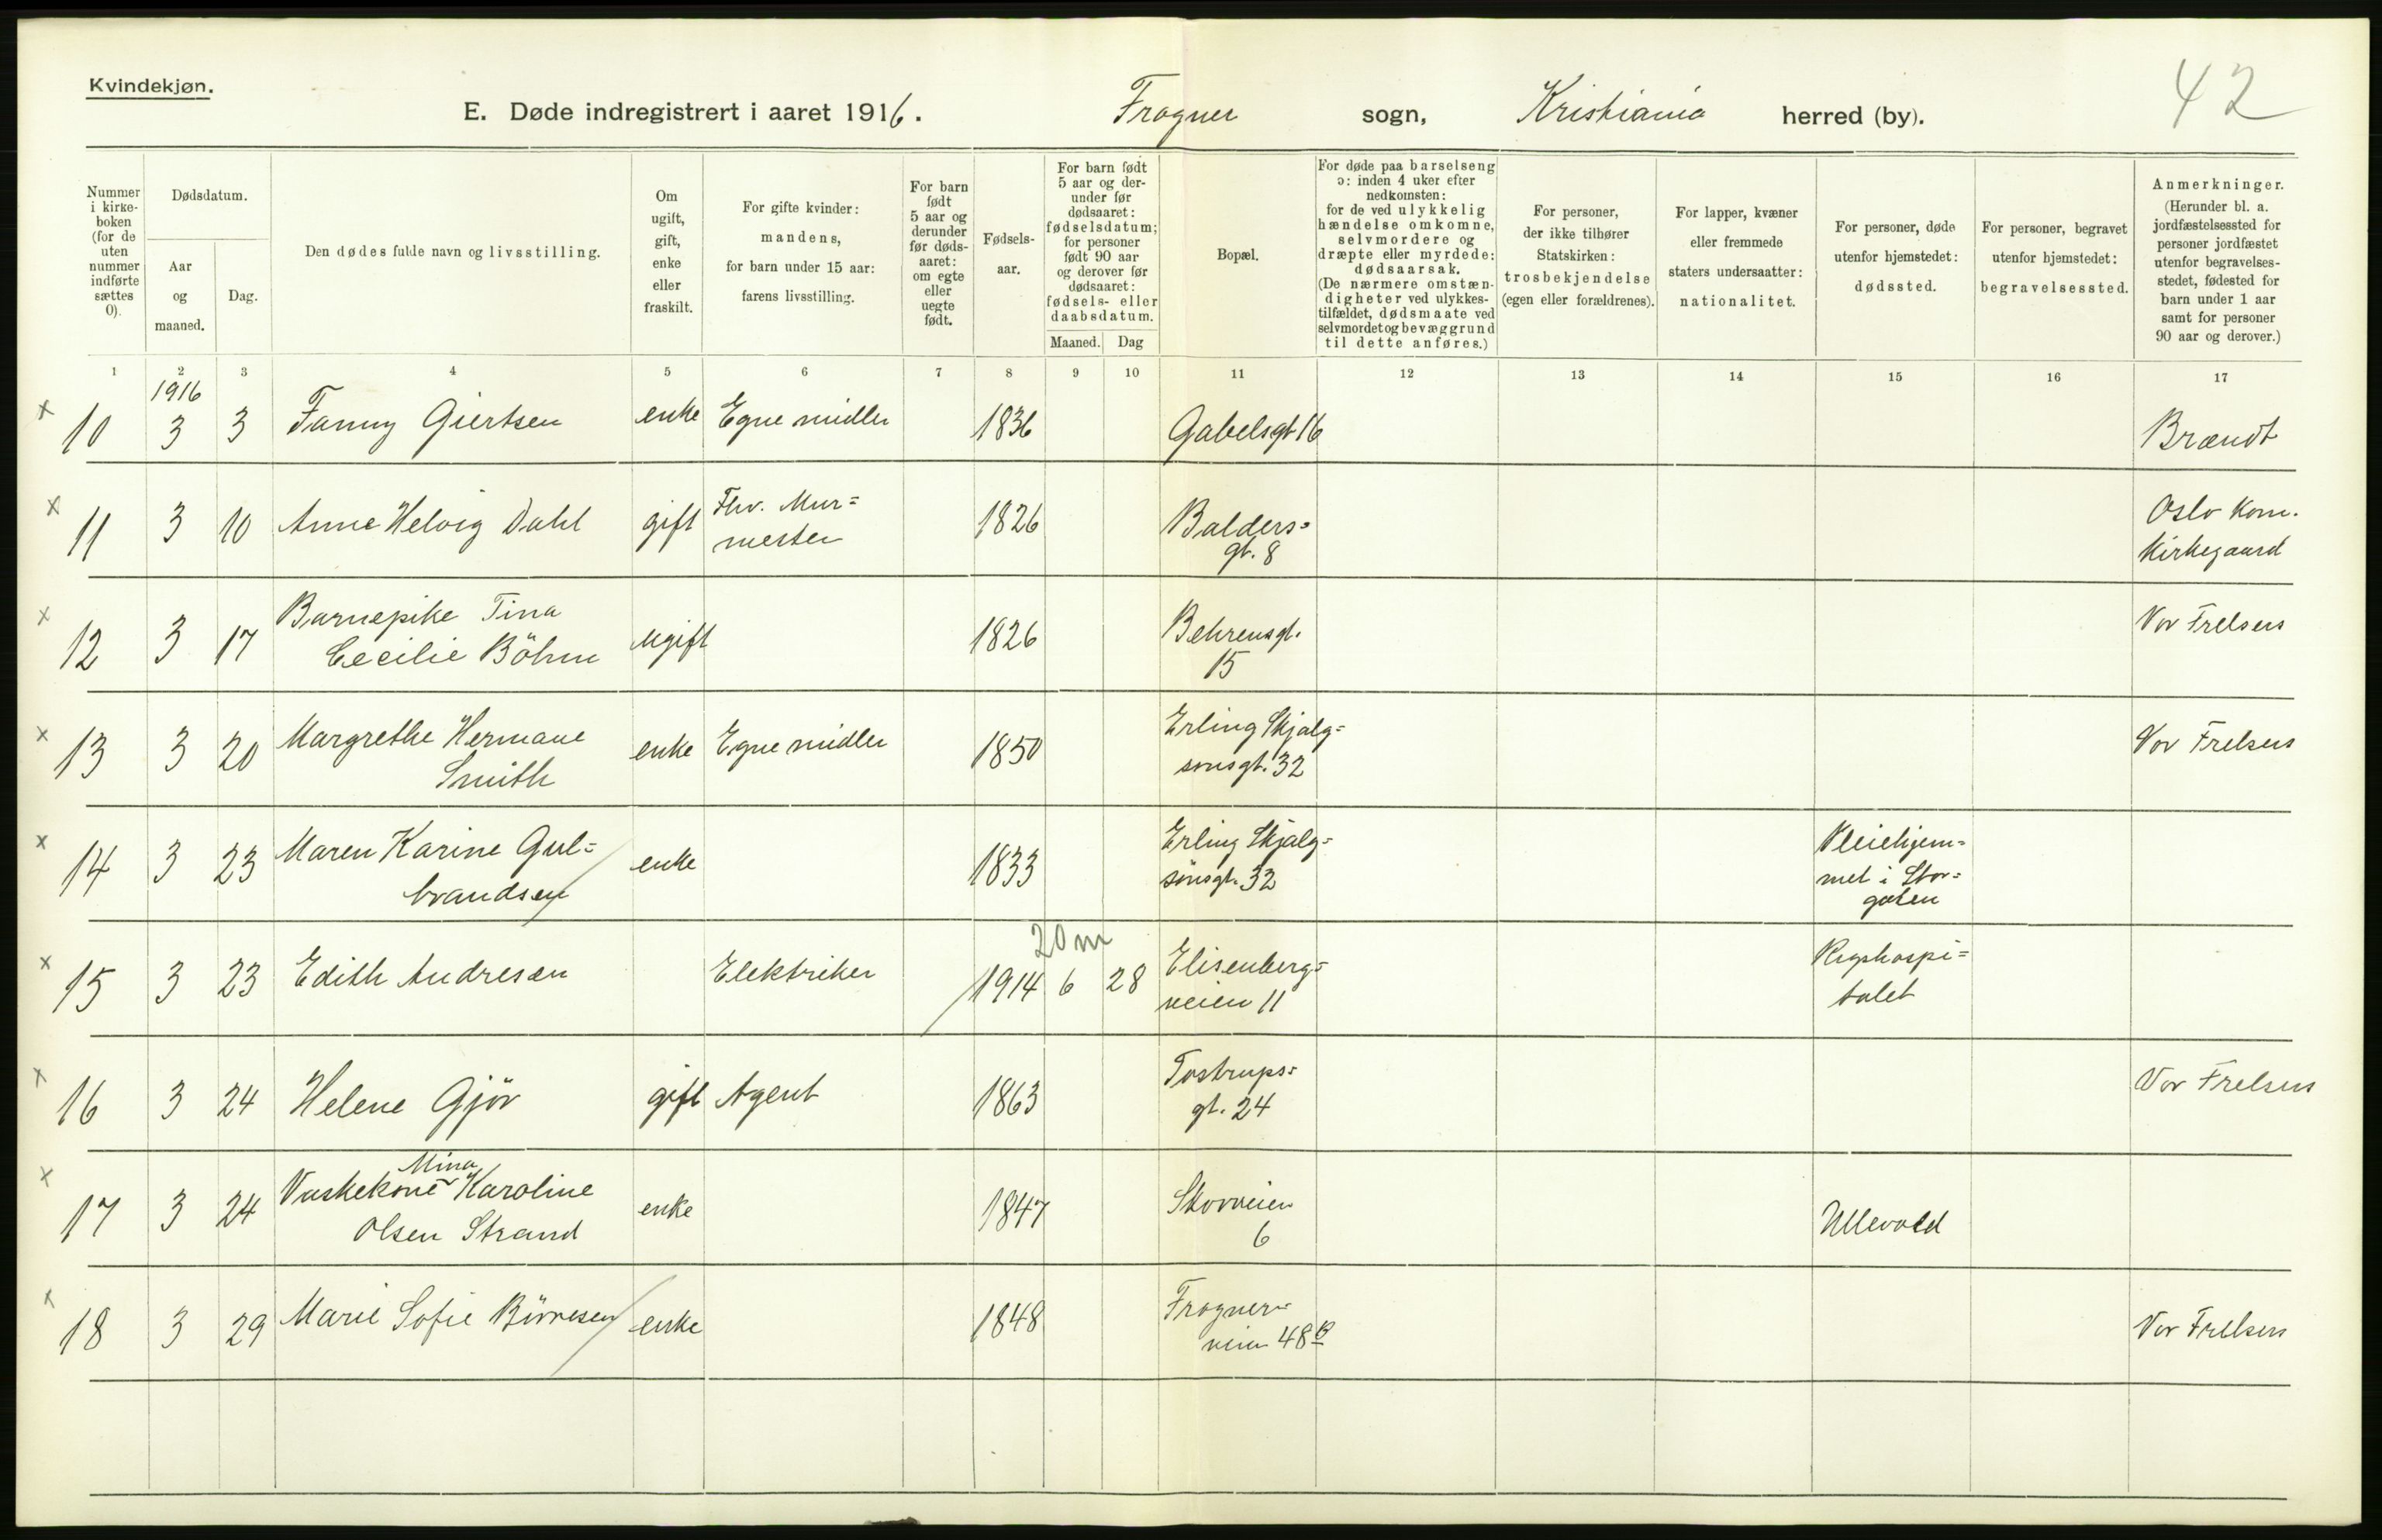 Kvindekjøn.
42
E. Døde indregistrert i aaret 1916. Frogner sogn, Kristiania herred (by).
Nummer i kirke-boken (for de uten nummer indførte sættes 0).
Dødsdatum.
Aar og maaned.
Dag.
Den dødes fulde navn og livsstilling.
Om ugift, gift, enke eller fraskilt.
For gifte kvinder: mandens, for barn under 15 aar: farens livsstilling.
For barn født 5 aar og derunder før døds-aaret: om egte eller uegte født.
Fødsels-aar.
For barn født 5 aar og der-under før dødsaaret: fødselsdatum; for personer født 90 aar og derover før dødsaaret: fødsels- eller daabsdatum.
Maaned. Dag
Bopæl.
For døde paa barselseng ɔ: inden 4 uker efter nedkomsten: for de ved ulykkelig hændelse omkomne, selvmordere og dræpte eller myrdede: dødsaarsak. (De nærmere omstæn-digheter ved ulykkes-tilfældet, dødsmaate ved selvmordet og bevæggrund til dette anføres.)
For personer, der ikke tilhører Statskirken: trosbekjendelse (egen eller forældrenes).
For lapper, kvæner eller fremmede staters undersaatter: nationalitet.
For personer, døde utenfor hjemstedet: dødssted.
For personer, begravet utenfor hjemstedet: begravelsessted.
Anmerkninger. (Herunder bl. a. jordfæstelsessted for personer jordfæstet utenfor begravelses-stedet, fødested for barn under 1 aar samt for personer 90 aar og derover.)
1 2 3 4 5 6 7 8 9 10 11 12 13 14 15 16 17
1916
x 10 3 3 Fanny Giertsen enke Egne midler 1836 Gabelsgt 16 Brandt
x 11 3 10 Anne Helvig Dahl gift Fhv. Mur=
mester 1826 Balders=
gt. 8 Oslo Kom.
Kirkegaard
x 12 3 17 Barnepike Tina
Cecilie Böhm ugift 1826 Behrensgt.
15 Vor Frelsers
x 13 3 20 Margrethe Hermane
Smith enke Egne midler 1850 Erling Skjalg=
sonsgt. 32 Vor Frelsers
x 14 3 23 Maren Karine Gul=
brandsen enke 1833 Erling Skjalg=
sönsgt. 32 Pleiehjem=
met i Stor=
gaten
20 m
x 15 3 23 Edith Andresen Elektriker 1914 6 28 Elisenberg=
veien 11 Rigshospi=
talet
x 16 3 24 Helene Gjör gift Agent 1863 Tostrups=
gt. 24 Vor Frelsers
Mina
x 17 3 24 Vaskekone Karoline
Olsen Strand enke 1847 Skovveien
6 Ullevold
x 18 3 29 Marie Sofie Börresen enke 1848 Frogner=
veien 48 B Vor Frelsers